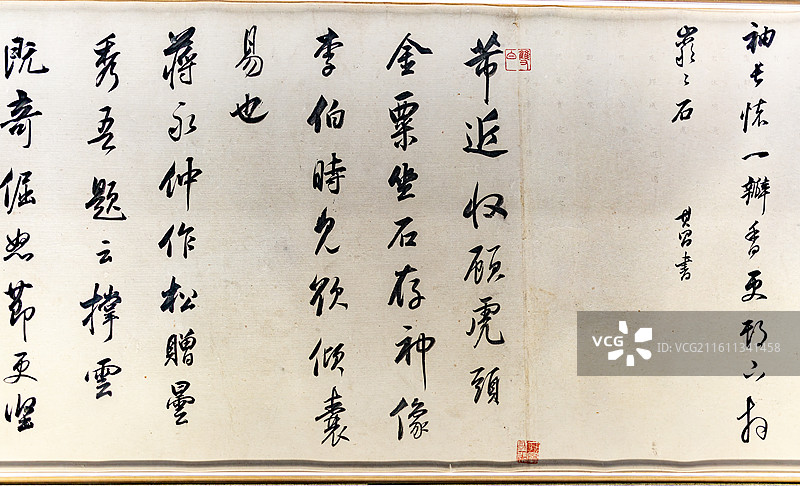 袖長懷一瓣香更下拜
巖〻石
其昌書
芾近收顧虎頭
金粟坐石存神像
李伯時見欲傾囊
易也
蔣永仲作松贈曇
秀吾題云撑雲
既奇倔怒節更堅
VCG
VCG
ID:VCG211611341458